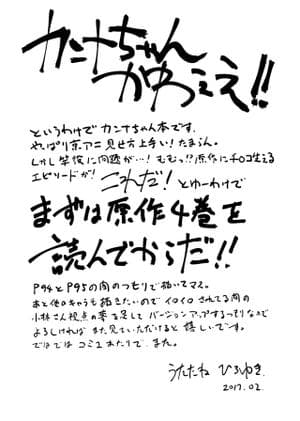 カンナちゃん
かわええ!!
というわけでカンナちゃん本です。
やっぱり京アニ見せ方上手い!たまらん。
しかし竿役に問題が…!むむっ?原作にチョロっと生える
エピソードが!これだ!とゆーわけで
まずは原作4巻を
読んでからだ!!
P94とP95の間のつもりで描いてマス。
あと他のキャラも描きたいのでイロイロされてる間の
小林さん視点の夢を足してバージョンアップするつもりなので
よろしければまた見ていただけると嬉しいです。
ではではコミ1あたりで、また。
うたたねひろゆき
2017.02.